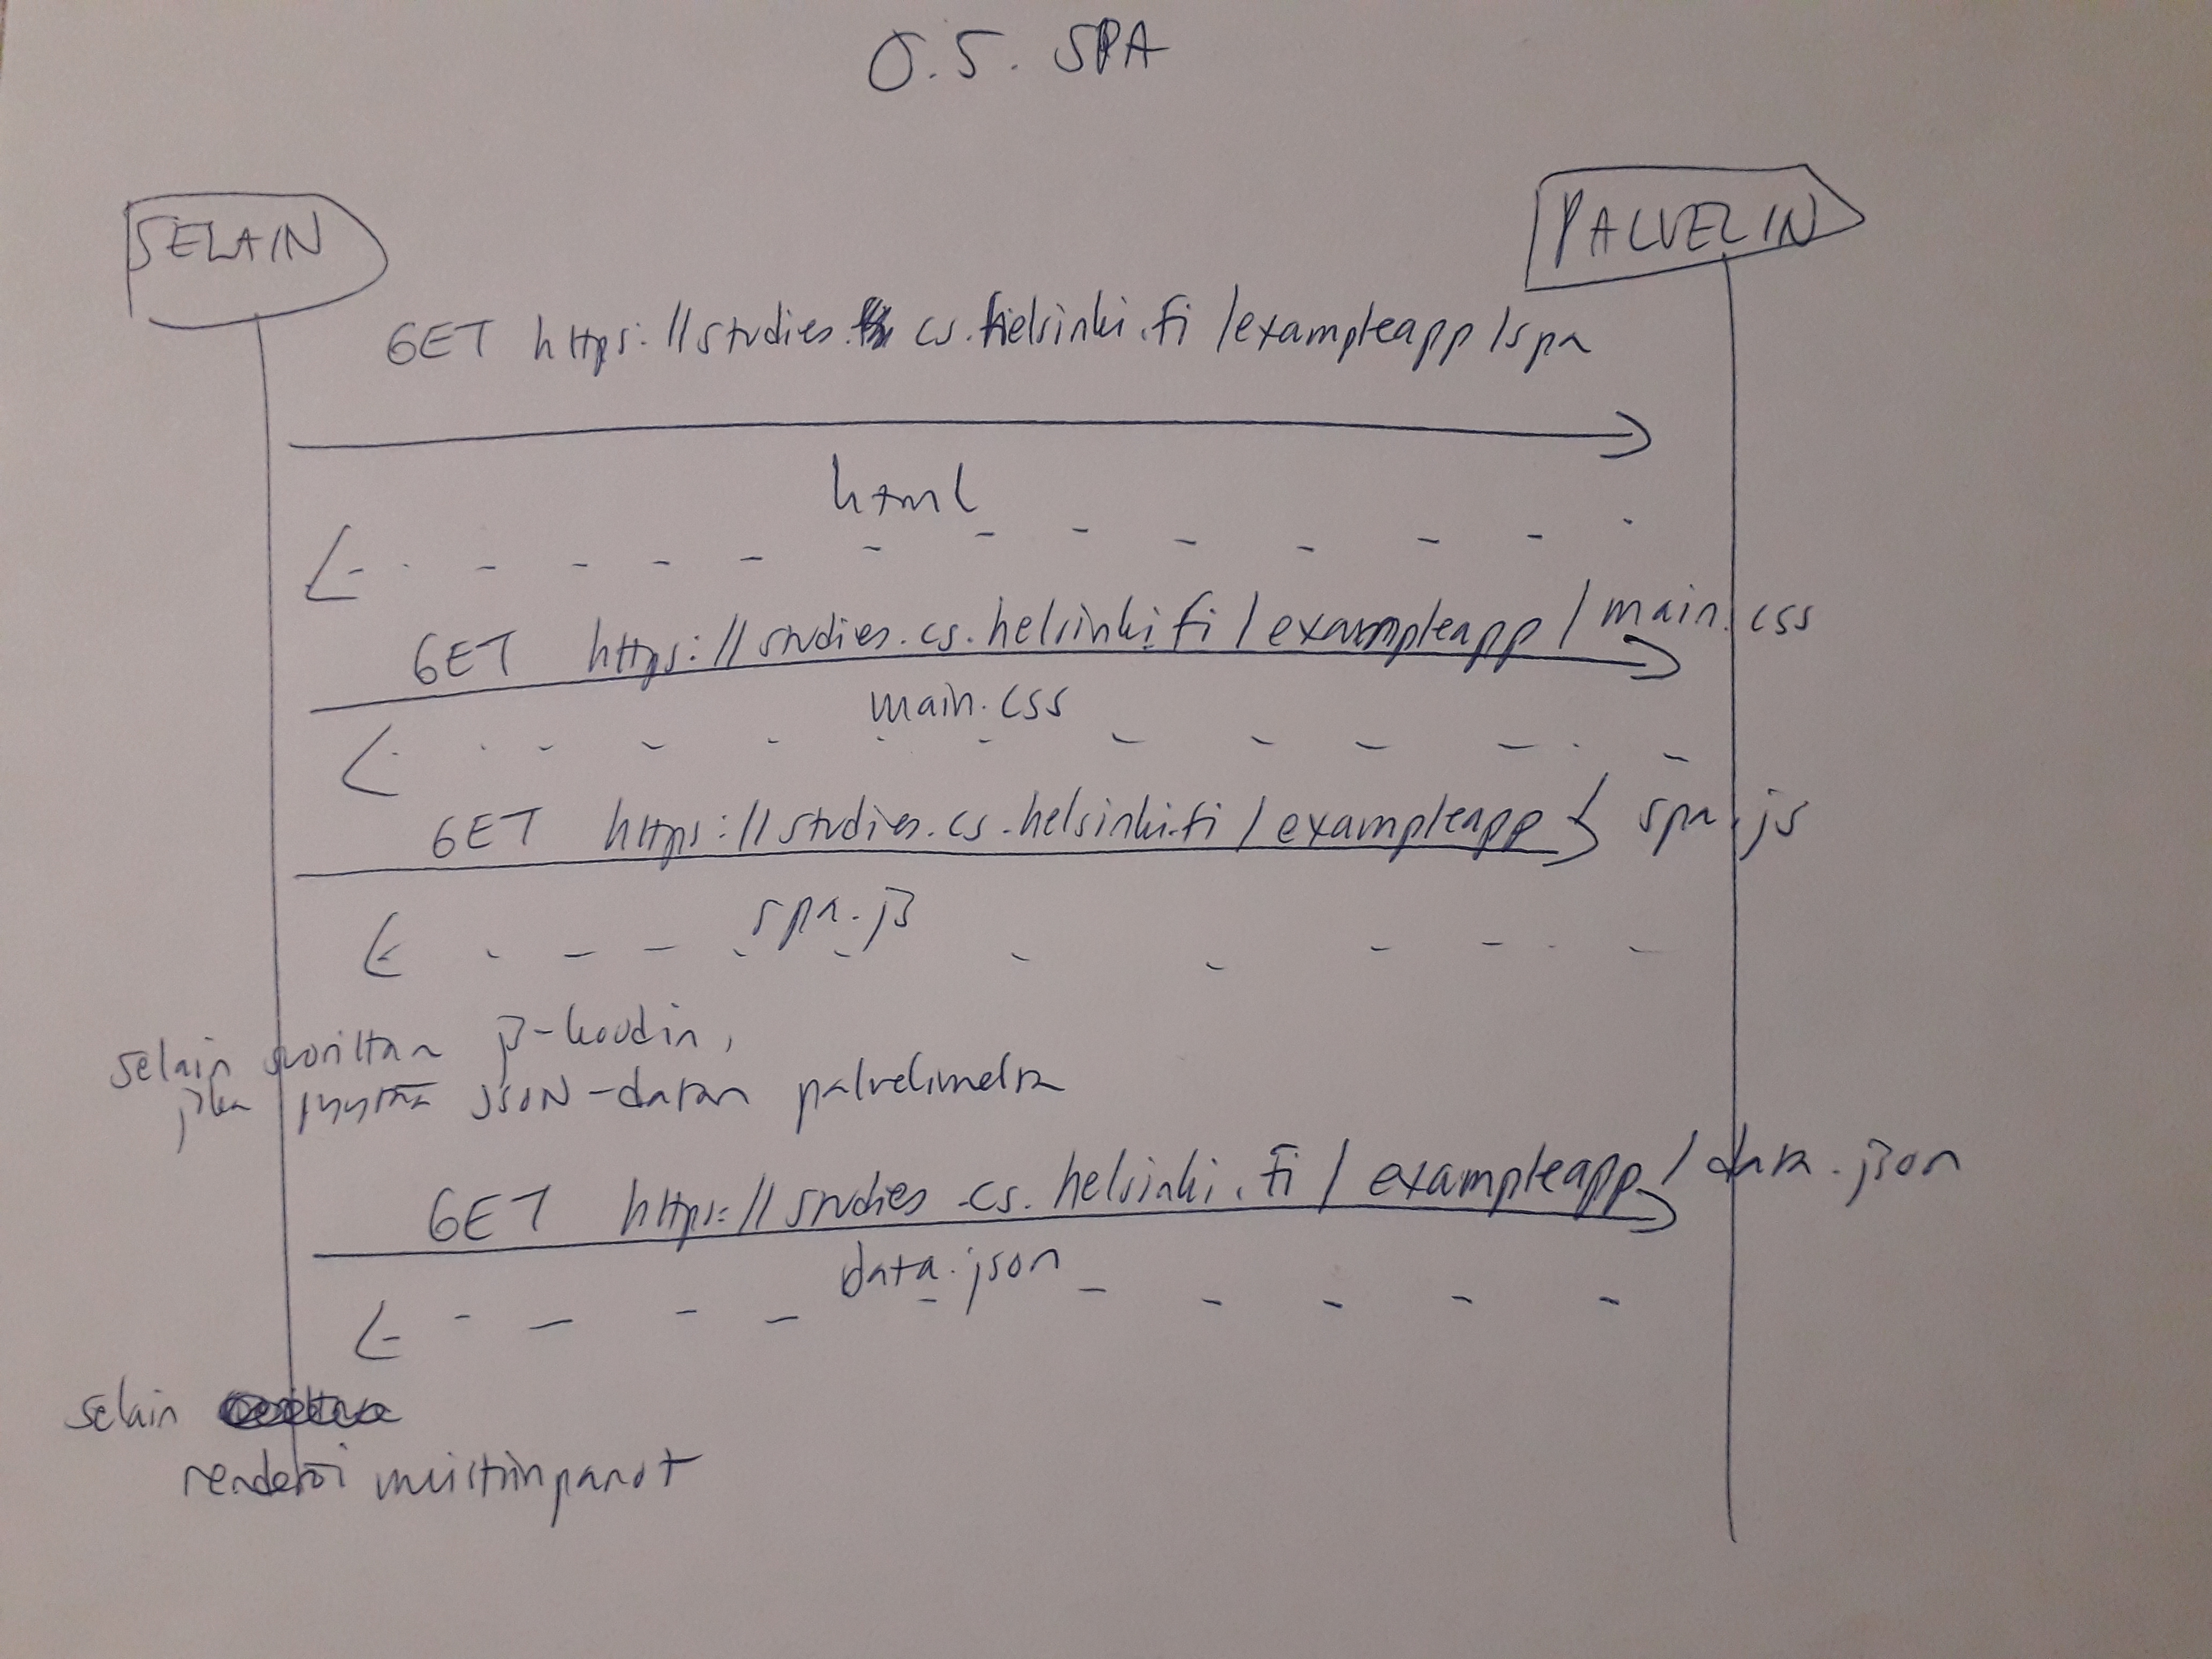 0.5. SPA
SELAIN
PALVELIN
GET https://studies.cs.helsinki.fi/exampleapp/spa
html
GET https://studies.cs.helsinki.fi/exampleapp/main.css
main.css
GET https://studies.cs.helsinki.fi/exampleapp/spa.js
spa.js
selain suorittaa js-koodin,
joka pyytää JSON-datan palvelimelta
GET https://studies.cs.helsinki.fi/exampleapp/data.json
data.json
selain
renderöi muistiinpanot